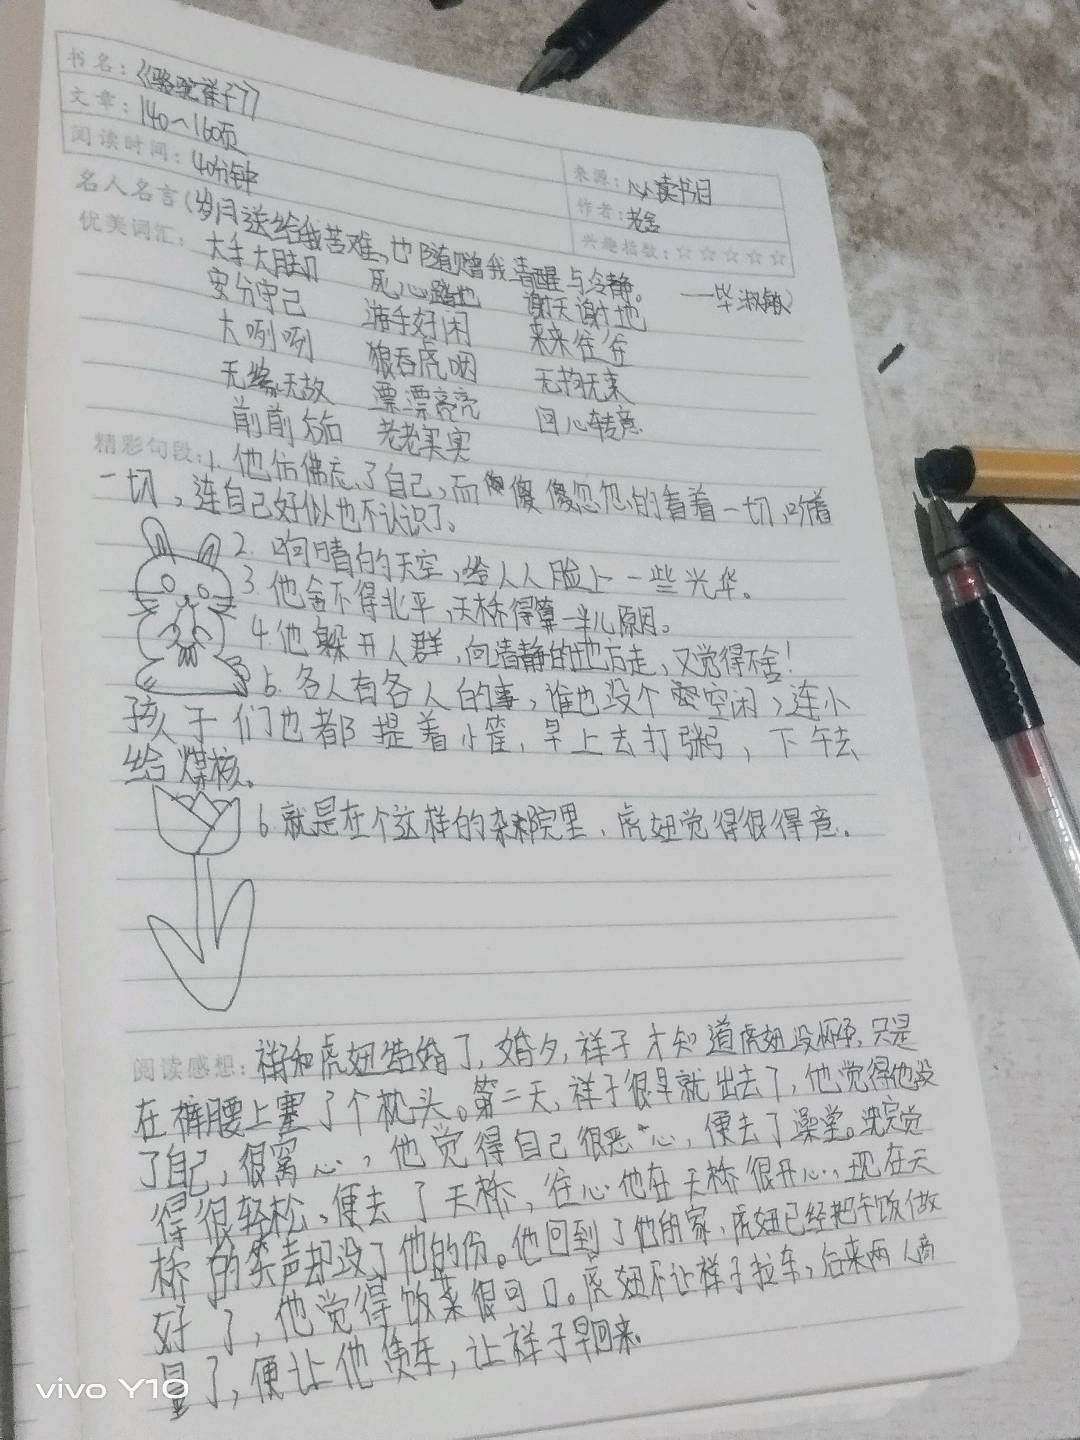 书名：《骆驼祥子》
文章：140～160页
阅读时间：40分钟
来源：从读书目
作者：老舍
兴趣指数：☆☆☆☆☆
名人名言（岁月送给我苦难，也随赠我清醒与冷静。——毕淑敏）
优美词汇：大手大脚 死心踏地 谢天谢地
安分守己 游手好闲 来来往往
大咧咧 狼吞虎咽 无拘无束
无缘无故 漂漂亮亮 回心转意
前前后后 老老实实
精彩句段：1. 他仿佛忘了自己，而傻傻忽忽的看着一切，听着
一切，连自己好似也不认识了。
2. 响晴的天空，给人人脸上一些光华。
3. 他舍不得北平，天桥得算一半儿原因。
4. 他躲开人群，向清静的地方走，又觉得不舍！
5. 各人有各人的事，谁也没个空闲，连小
孩子们也都提着小筐，早上去打粥，下午去
给煤核。
6 就是在个这样的杂院里，虎妞觉得很得意。
阅读感想：祥和虎妞结婚了，婚夕，祥子才知道虎妞没怀孕，只是
在裤腰上塞了个枕头。第二天，祥子很早就出去了，他觉得他没
了自己，很窝心，他觉得自己很恶心，便去了澡堂。洗完觉
得很轻松，便去了天桥，往心他在天桥很开心，现在天
桥的笑声却没了他的份。他回到了他的家，虎妞已经把午饭做
好了，他觉得饭菜很可口。虎妞不让祥子拉车，后来两人商
量了，便让他赁车，让祥子早回来。
vivo Y10